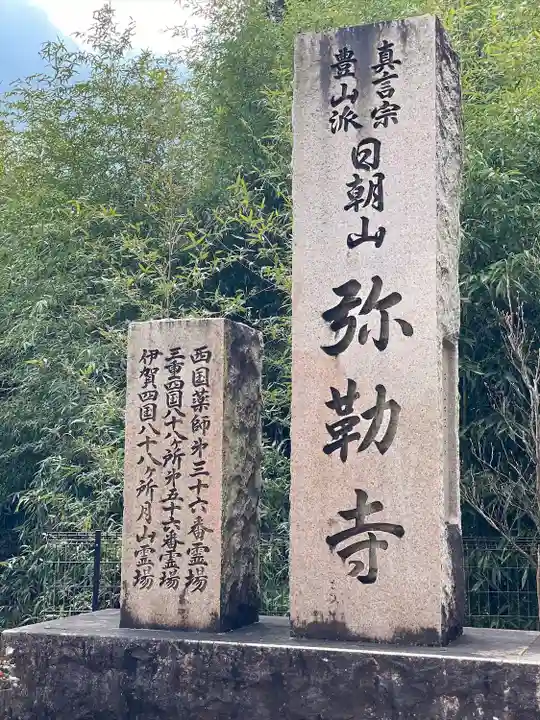 真言宗
豊山派
日朝山
弥勒寺
西国薬師第三十六番霊場
三重四国八十八ヶ所第五十六番霊場
伊賀四国八十八ヶ所月山霊場